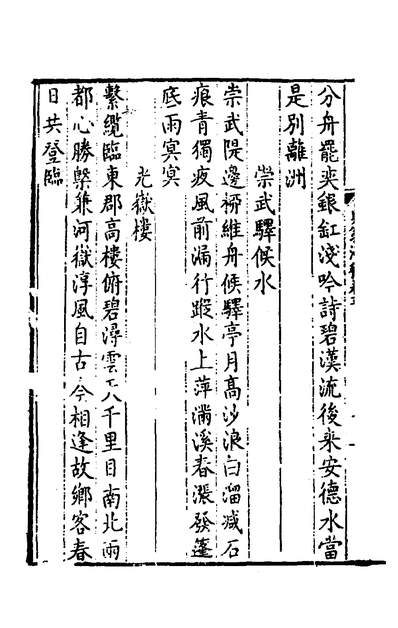 分舟罷奕銀缸淺吟詩碧漢流後来安德水當
是別離洲
崇武驛候水
崇武隄邊栁維舟候驛亭月高沙浪白溜减石
痕青獨夜風前漏行蹤水上萍滿溪春漲發篷
底雨冥冥
光嶽樓
繫纜臨東郡髙樓俯碧潯雲 八千里目南北兩
都心勝槩兼河嶽淳風自古今相逢故鄉客春
日共登臨